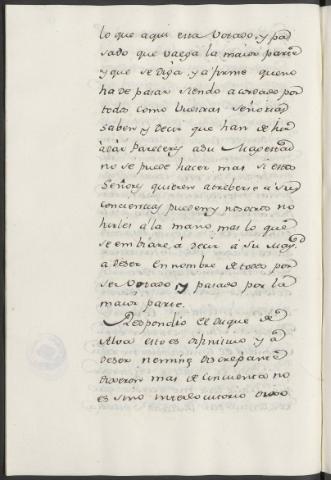 lo que aqui esta votado, y pa
sado que valga la maior parte
y que se diga, y afirme que no
ha de pasar siendo acordado por
todos como Vuestras Señorias
saben y decir que han de
à dar Parecer y a Su Magestad
no se puede hacer mas si estos
Señores quieren atreberse à sus
conciencias pueden y nosotros no
hirles à la mano, mas lo que
se embiare, à decir à Su Magd
à deser en nombre de todos por
ser votado y pasado por la
maior parte.
Respondio el Duque de
Alva esto es difinitivo y à
deser nemine discrepante
dixeron mas de cincuenta no
es sino interlocutorio